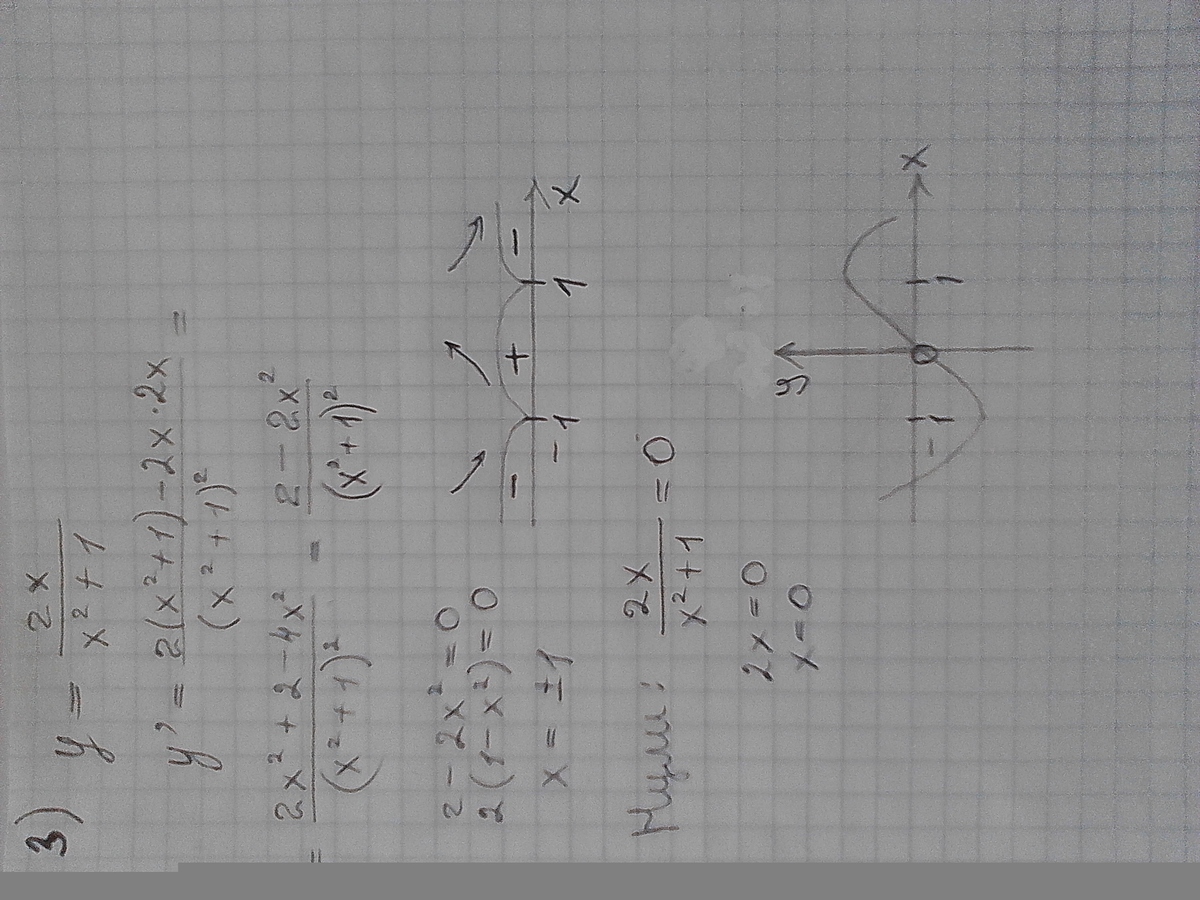 3) y = 2x / (x² + 1)
y' = (2(x²+1) - 2x · 2x) / (x² + 1)² =
= (2x² + 2 - 4x²) / (x² + 1)² = (2 - 2x²) / (x² + 1)²
2 - 2x² = 0
2(1 - x²) = 0
x = ±1
- + -
-1 1 x
Нули: 2x / (x² + 1) = 0
2x = 0
x = 0
y
-1 0 1 x